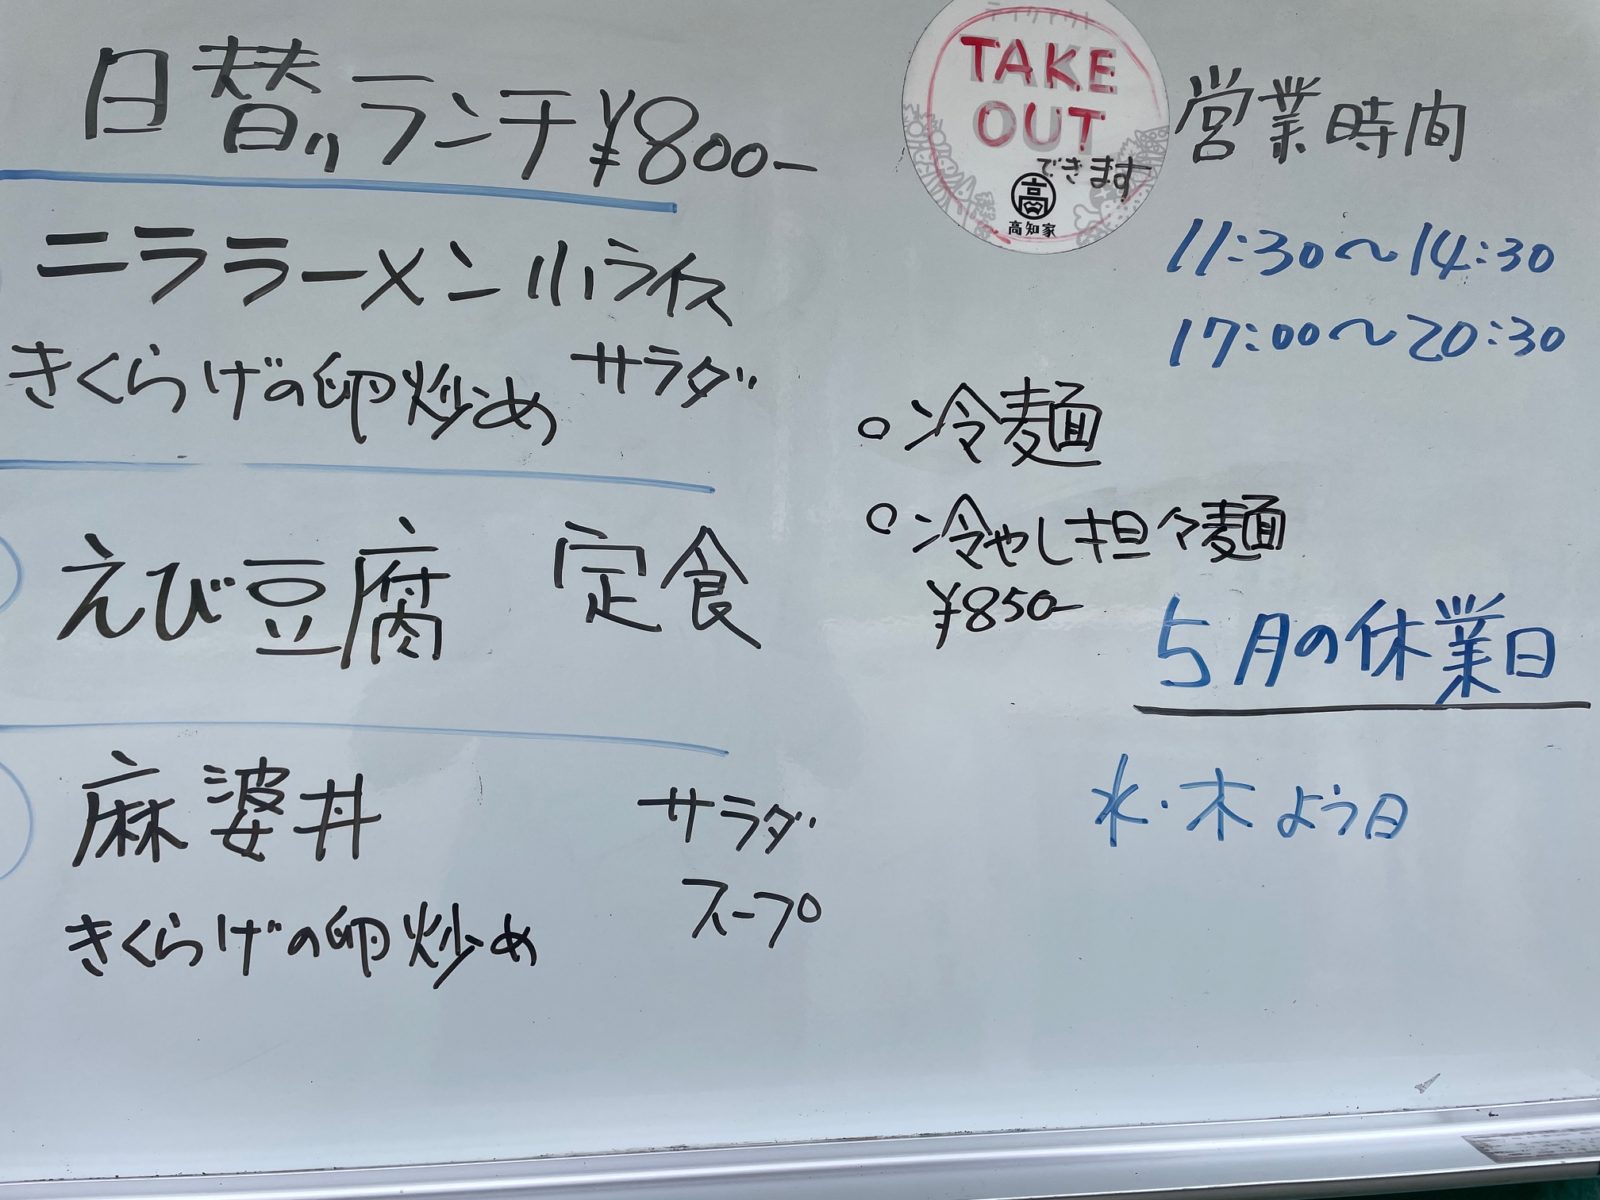 日替りランチ ¥800-
ニララーメン 小ライス
きくらげの卵炒め サラダ
えび豆腐 定食
麻婆丼 サラダ
スープ
きくらげの卵炒め
テイクアウト
TAKE
OUT
できます
高
高知家
営業時間
11:30〜14:30
17:00〜20:30
○冷麺
○冷やし担々麺
¥850-
5月の休業日
水・木よう日